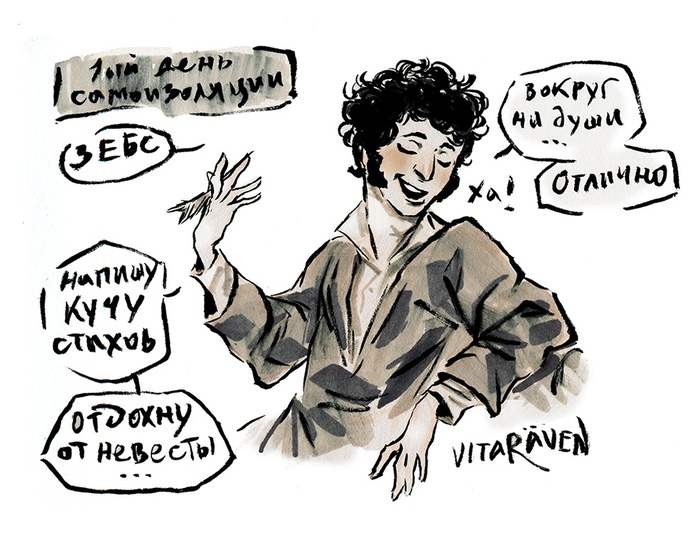 1ый день
самоизоляции
ЗЕБС
ВОКРУГ
НИ ДУШИ
...
ОТЛИЧНО
Ха!
НАПИШУ
КУЧУ
СТИХОВ
ОТДОХНУ
ОТ НЕВЕСТЫ
...
VITARÄVEN